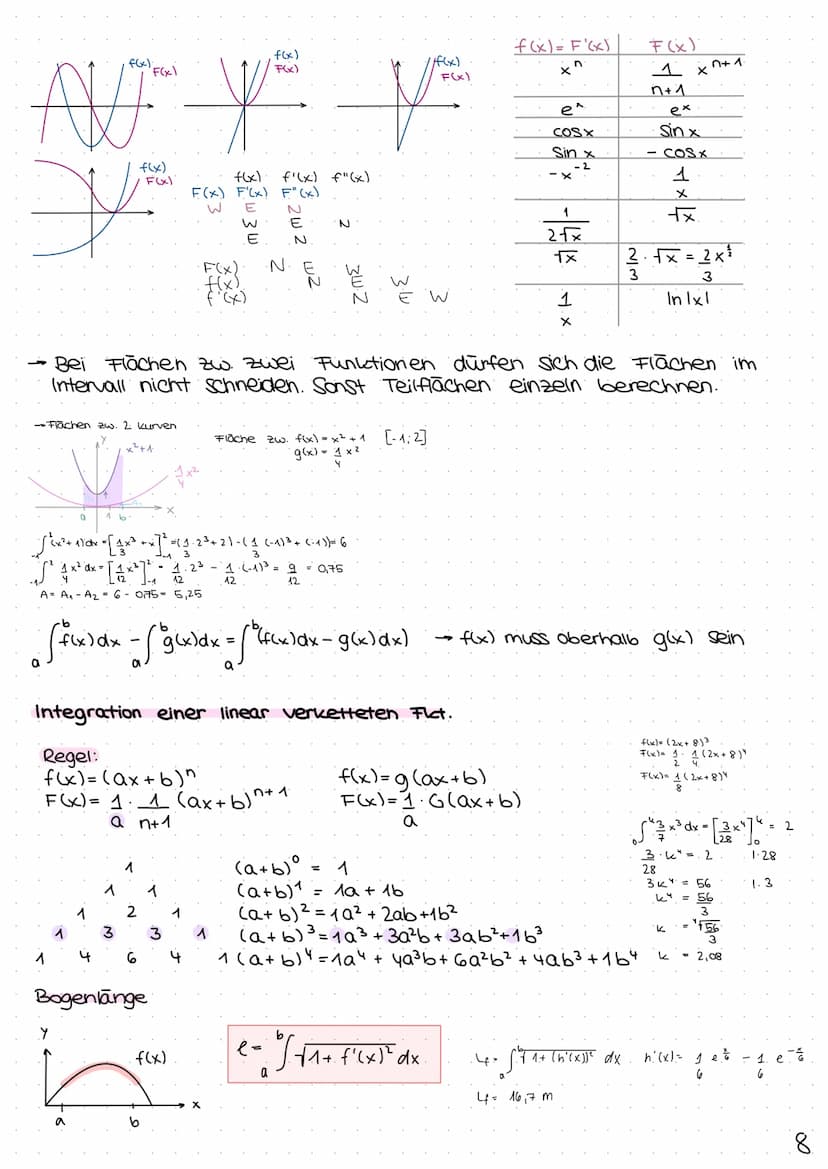 f(x) F(x)
f(x) F(x)
f(x) F(x)
f(x) F(x)
f(x) f'(x) f''(x)
F(x) F'(x) F''(x)
W E N
W E N
E N
F(x) N E W
f(x) N E W
f'(x) N E W
f(x)= F'(x) F(x)
xⁿ 1/(n+1) xⁿ⁺¹
eˣ eˣ
cosx sin x
Sin x - cosx
-x⁻² 1/x
1/(2√x) √x
√x 2/3 · √x = 2/3 x^½
1/x ln|x|
→ Bei Flächen zw. zwei Funktionen dürfen sich die Flächen im
Intervall nicht schneiden. Sonst Teilflächen einzeln berechnen.
→ Flächen zw. 2 kurven
y x²+1 1/4 x² x a 1 b
Fläche zw. f(x) = x² + 1 [-1; 2]
g(x) = 1/4 x²
₋₁∫² (x²+1)dx = [1/3 x³ + x]²₋₁ = (1/3 · 2³ + 2) - (1/3 (-1)³ + (-1)) = 6
₋₁∫² 1/4 x² dx = [1/12 x³]²₋₁ = 1/12 · 2³ - 1/12 · (-1)³ = 9/12 = 0,75
A = A₁ - A₂ = 6 - 0,75 = 5,25
ₐ∫ᵇ f(x) dx - ₐ∫ᵇ g(x) dx = ₐ∫ᵇ (f(x) dx - g(x) dx) → f(x) muss oberhalb g(x) sein
Integration einer linear verketteten Fkt.
Regel:
f(x) = (ax+b)ⁿ f(x) = g(ax+b)
F(x) = 1/a · 1/(n+1) (ax+b)ⁿ⁺¹ F(x) = 1/a · G(ax+b)
f(x) = (2x+8)³
F(x) = 1/2 · 1/4 (2x+8)⁴
F(x) = 1/8 (2x+8)⁴
₀∫ᵏ 3/7 x³ dx = [3/28 x⁴]ᵏ₀ = 2
3/28 · k⁴ = 2 | · 28
3k⁴ = 56 | : 3
k⁴ = 56/3
k = ⁴√56/3
k = 2,08
1 (a+b)⁰ = 1
1 1 (a+b)¹ = 1a + 1b
1 2 1 (a+b)² = 1a² + 2ab + 1b²
1 3 3 1 (a+b)³ = 1a³ + 3a²b + 3ab² + 1b³
1 4 6 4 1 (a+b)⁴ = 1a⁴ + 4a³b + 6a²b² + 4ab³ + 1b⁴
Bogenlänge
y f(x) x a b
l = ₐ∫ᵇ √1 + f'(x)² dx
L = ₐ∫ᵇ √1 + (h'(x))² dx h'(x) = 1/6 e^(x/6) - 1/6 e^(-x/6)
L = 16,7 m
8